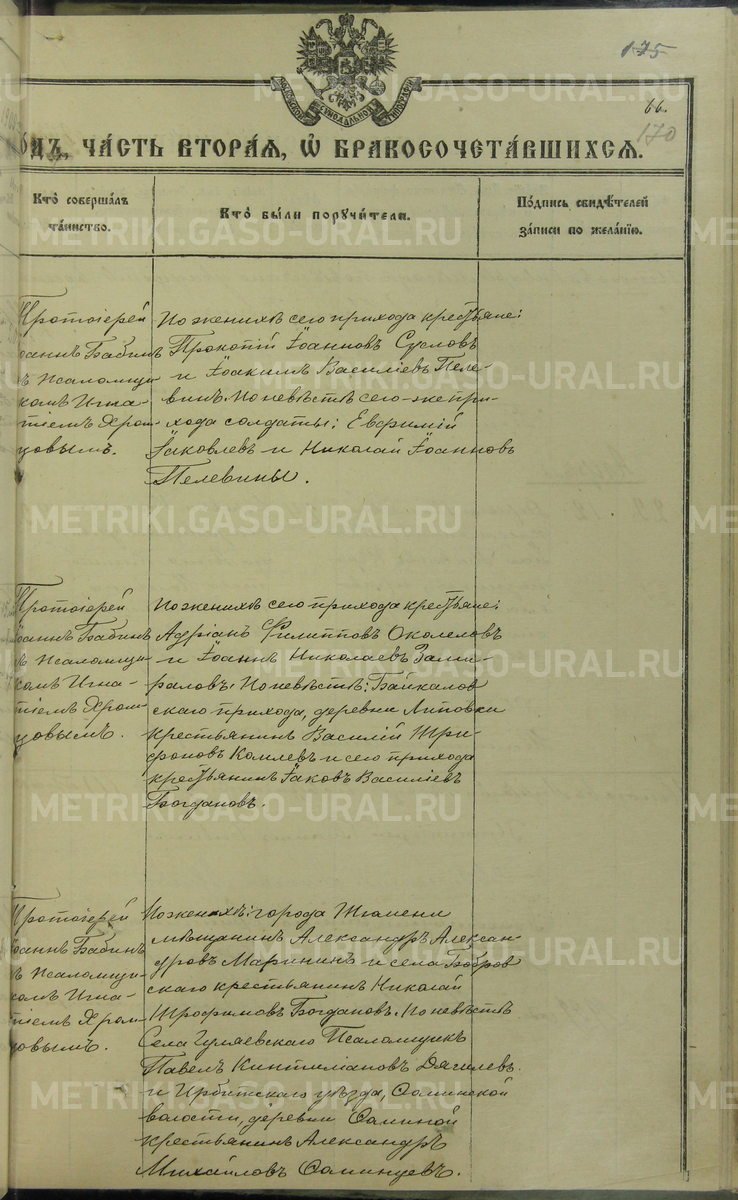 175
66.
170
одъ, ча́сть втора́я, ѡ҆ бракосочета́вшихся.
Кто̀ соверша́лъ
та́инство.
Кто̀ бы́ли поручи́тели.
По́дпись свидѣ́телей
за́писи по жела́нію.
Протоіерей
Іоаннъ Бабинъ
съ псаломщи-
комъ Игна-
тіемъ Хром-
цовымъ.
По женихѣ сего прихода крестьяне:
Прокопій Іоанновъ Сусловъ
и Іоакимъ Василіевъ Пеле-
винъ. По невѣстѣ сего-же при-
хода солдаты: Евфимій
Іаковлевъ и Николай Іоанновъ
Пелевины.
Протоіерей
Іоаннъ Бабинъ
съ псаломщи-
комъ Игна-
тіемъ Хром-
цовымъ.
По женихѣ сего прихода крестьяне:
Адріанъ Филипповъ Околеловъ
и Іоаннъ Николаевъ
По невѣстѣ: Байкалов-
скаго прихода, деревни Липовки
крестьянинъ Василій Три-
фоновъ Комлевъ и сего прихода
крестьянинъ Іаковъ Василіевъ
Богдановъ.
Протоіерей
Іоаннъ Бабинъ
съ псаломщи-
комъ Игна-
тіемъ Хром-
цовымъ.
По женихѣ: города Тюмени
мѣщанинъ Александръ Алексан-
дровъ Марининъ и села Бобров-
скаго крестьянинъ Николай
Трофимовъ Богдановъ. По невѣстѣ
Села Гуляевскаго Псаломщикъ
Павелъ Кинтиліановъ Дягилевъ
и Ирбитскаго уѣзда, Фоминской
волости, деревни Фоминой
крестьянинъ Александръ
Михайловъ Фоминцевъ.
METRIKI.GASO-URAL.RU